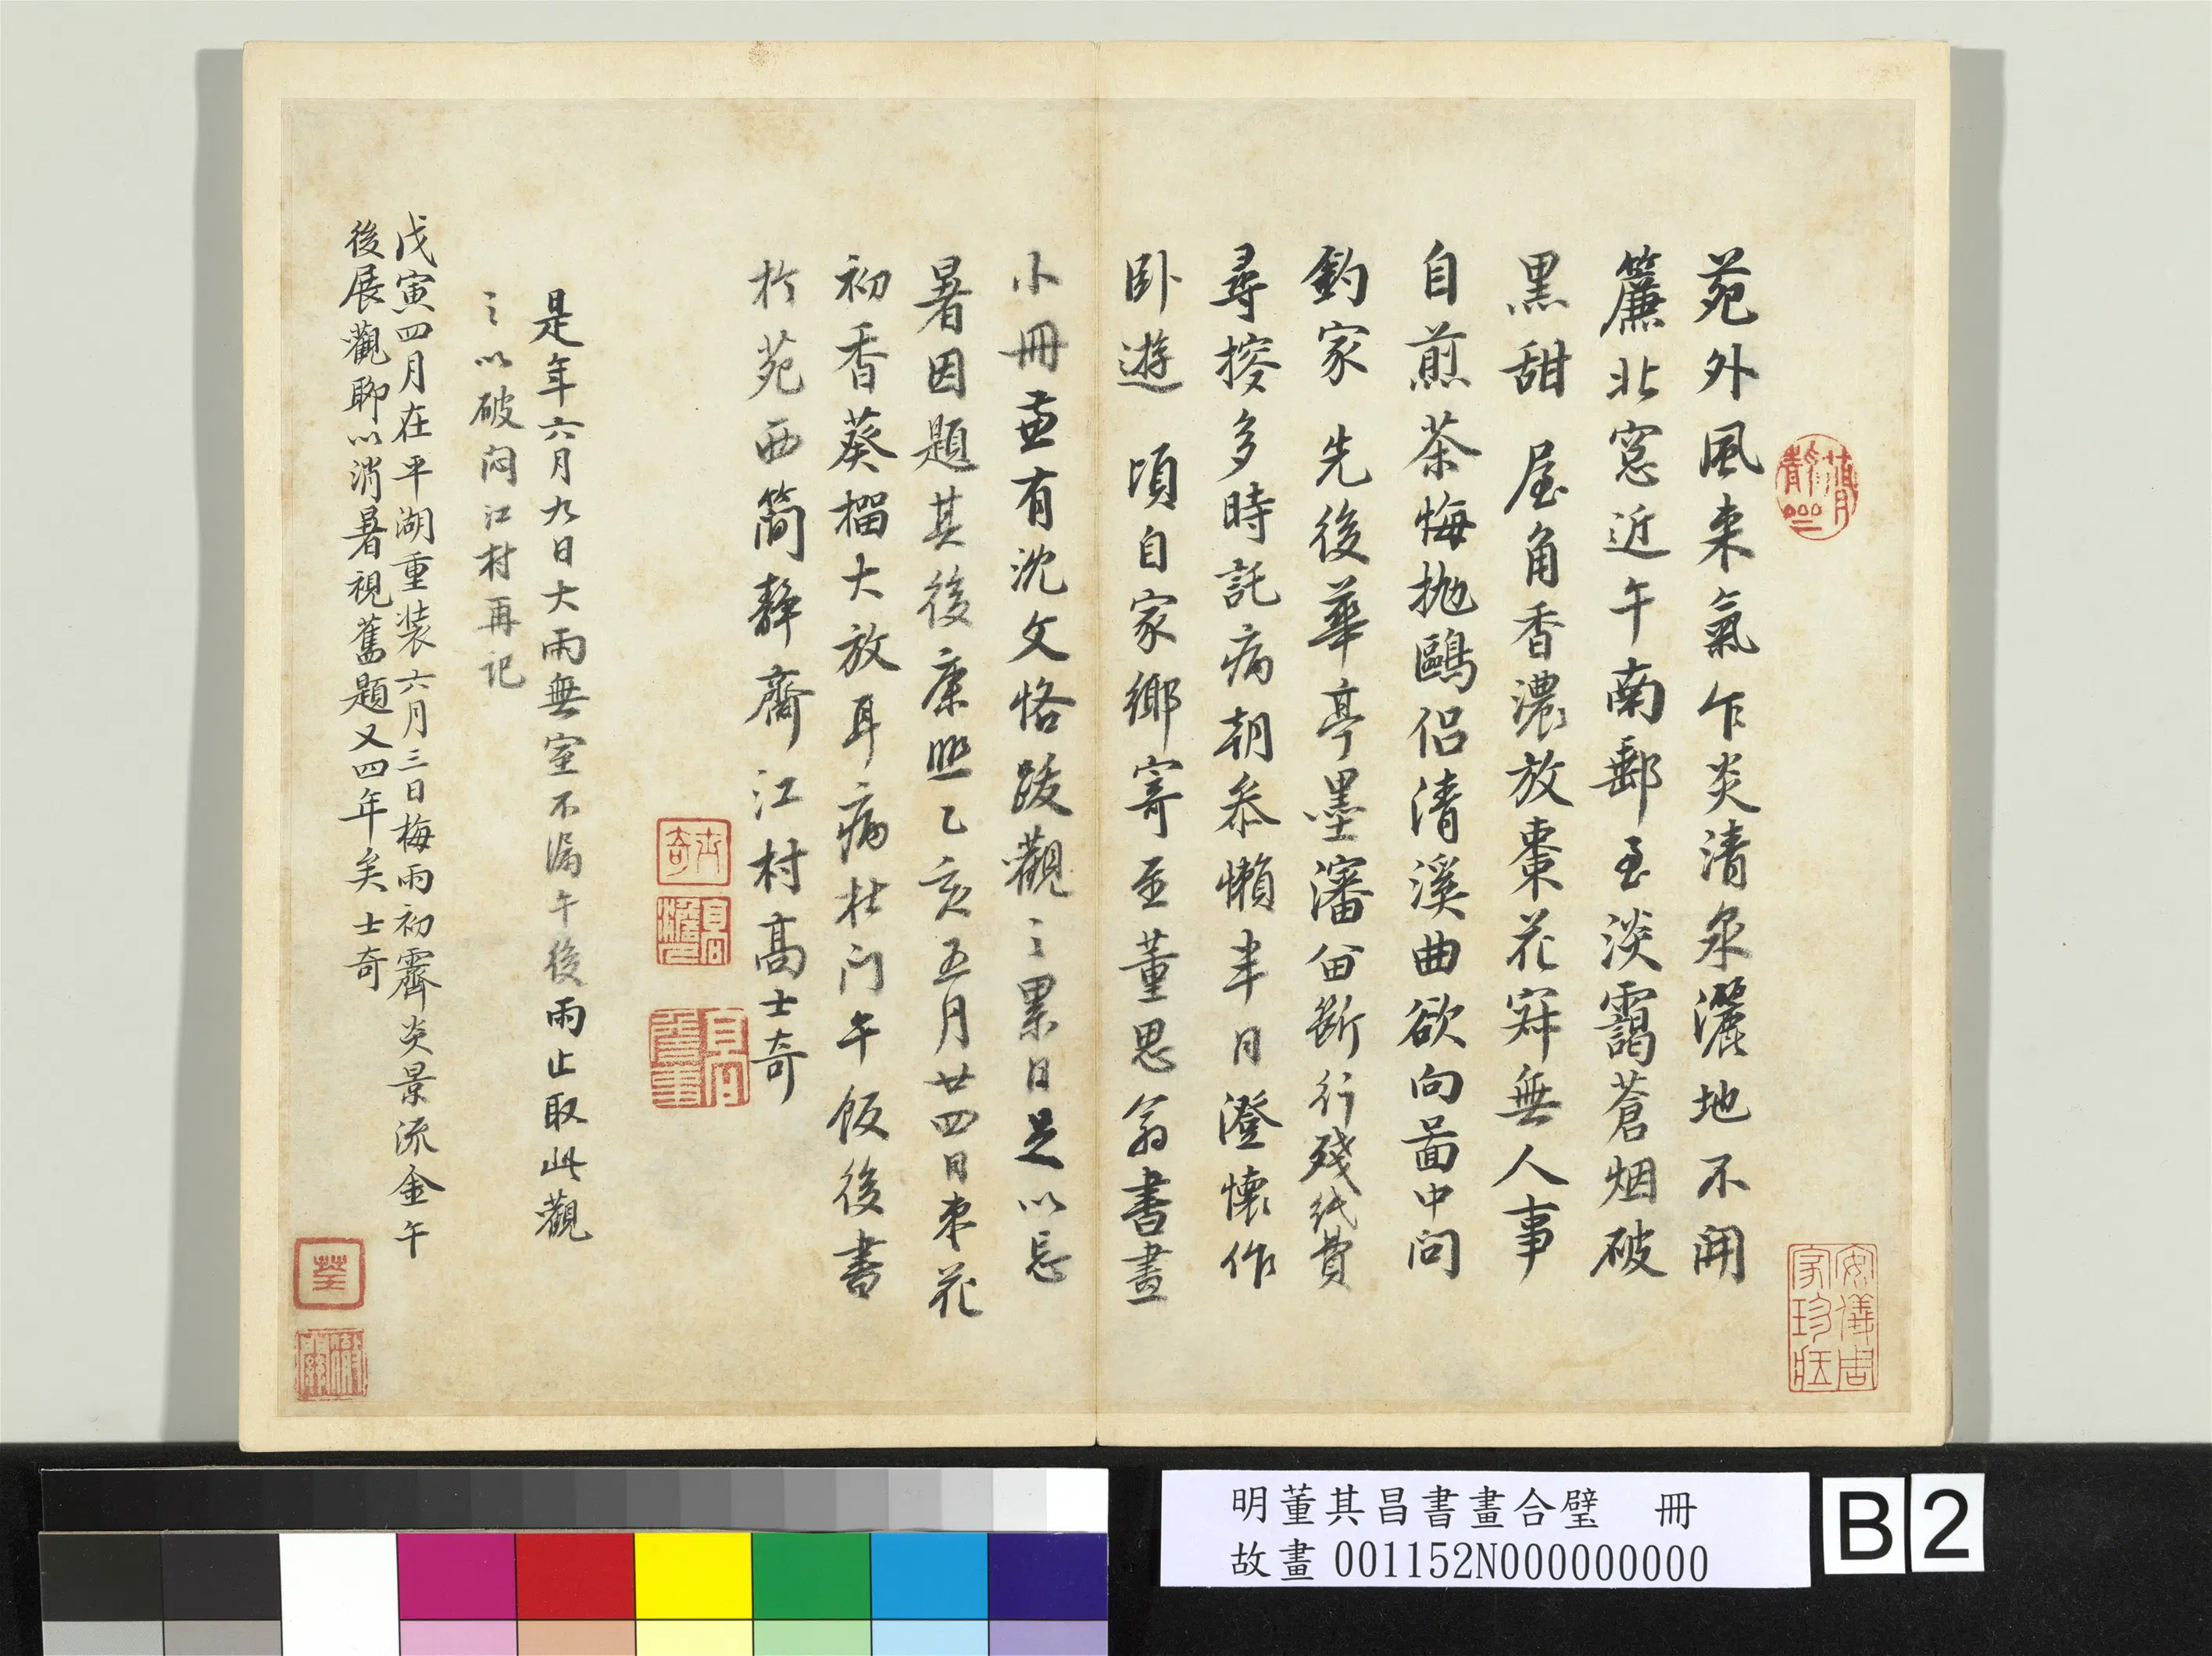 苑外風來氣乍炎清泉灑地不開
簾北窓近午南郵至淡靄蒼烟破
黒甜 屋角香濃放棗花寂無人事
自煎茶悔抛鷗侶清溪曲欲向啚中问
釣家 先後華亭墨瀋留斷行殘紙費
尋搜多時託病朝叅懶半日澄懷作
卧遊 頃自家鄉寄至董思翁書畫
小冊並有沈文恪跋觀〻累日足以忘
暑因題其後康熙乙亥五月廿四日棗花
初香葵榴大放耳病杜门午飯後書
於苑西簡靜齋 江村高士奇
是年六月九日大雨無室不漏午後雨止取此觀
〻以破闷江村再记
戊寅四月在平湖重装六月三日梅雨初霽炎景流金午
後展觀聊以消暑視舊題又四年矣 士奇
士奇
高詹
安儀周家珍藏
明董其昌書畫合璧 冊
故畫 001152N000000000
B 2